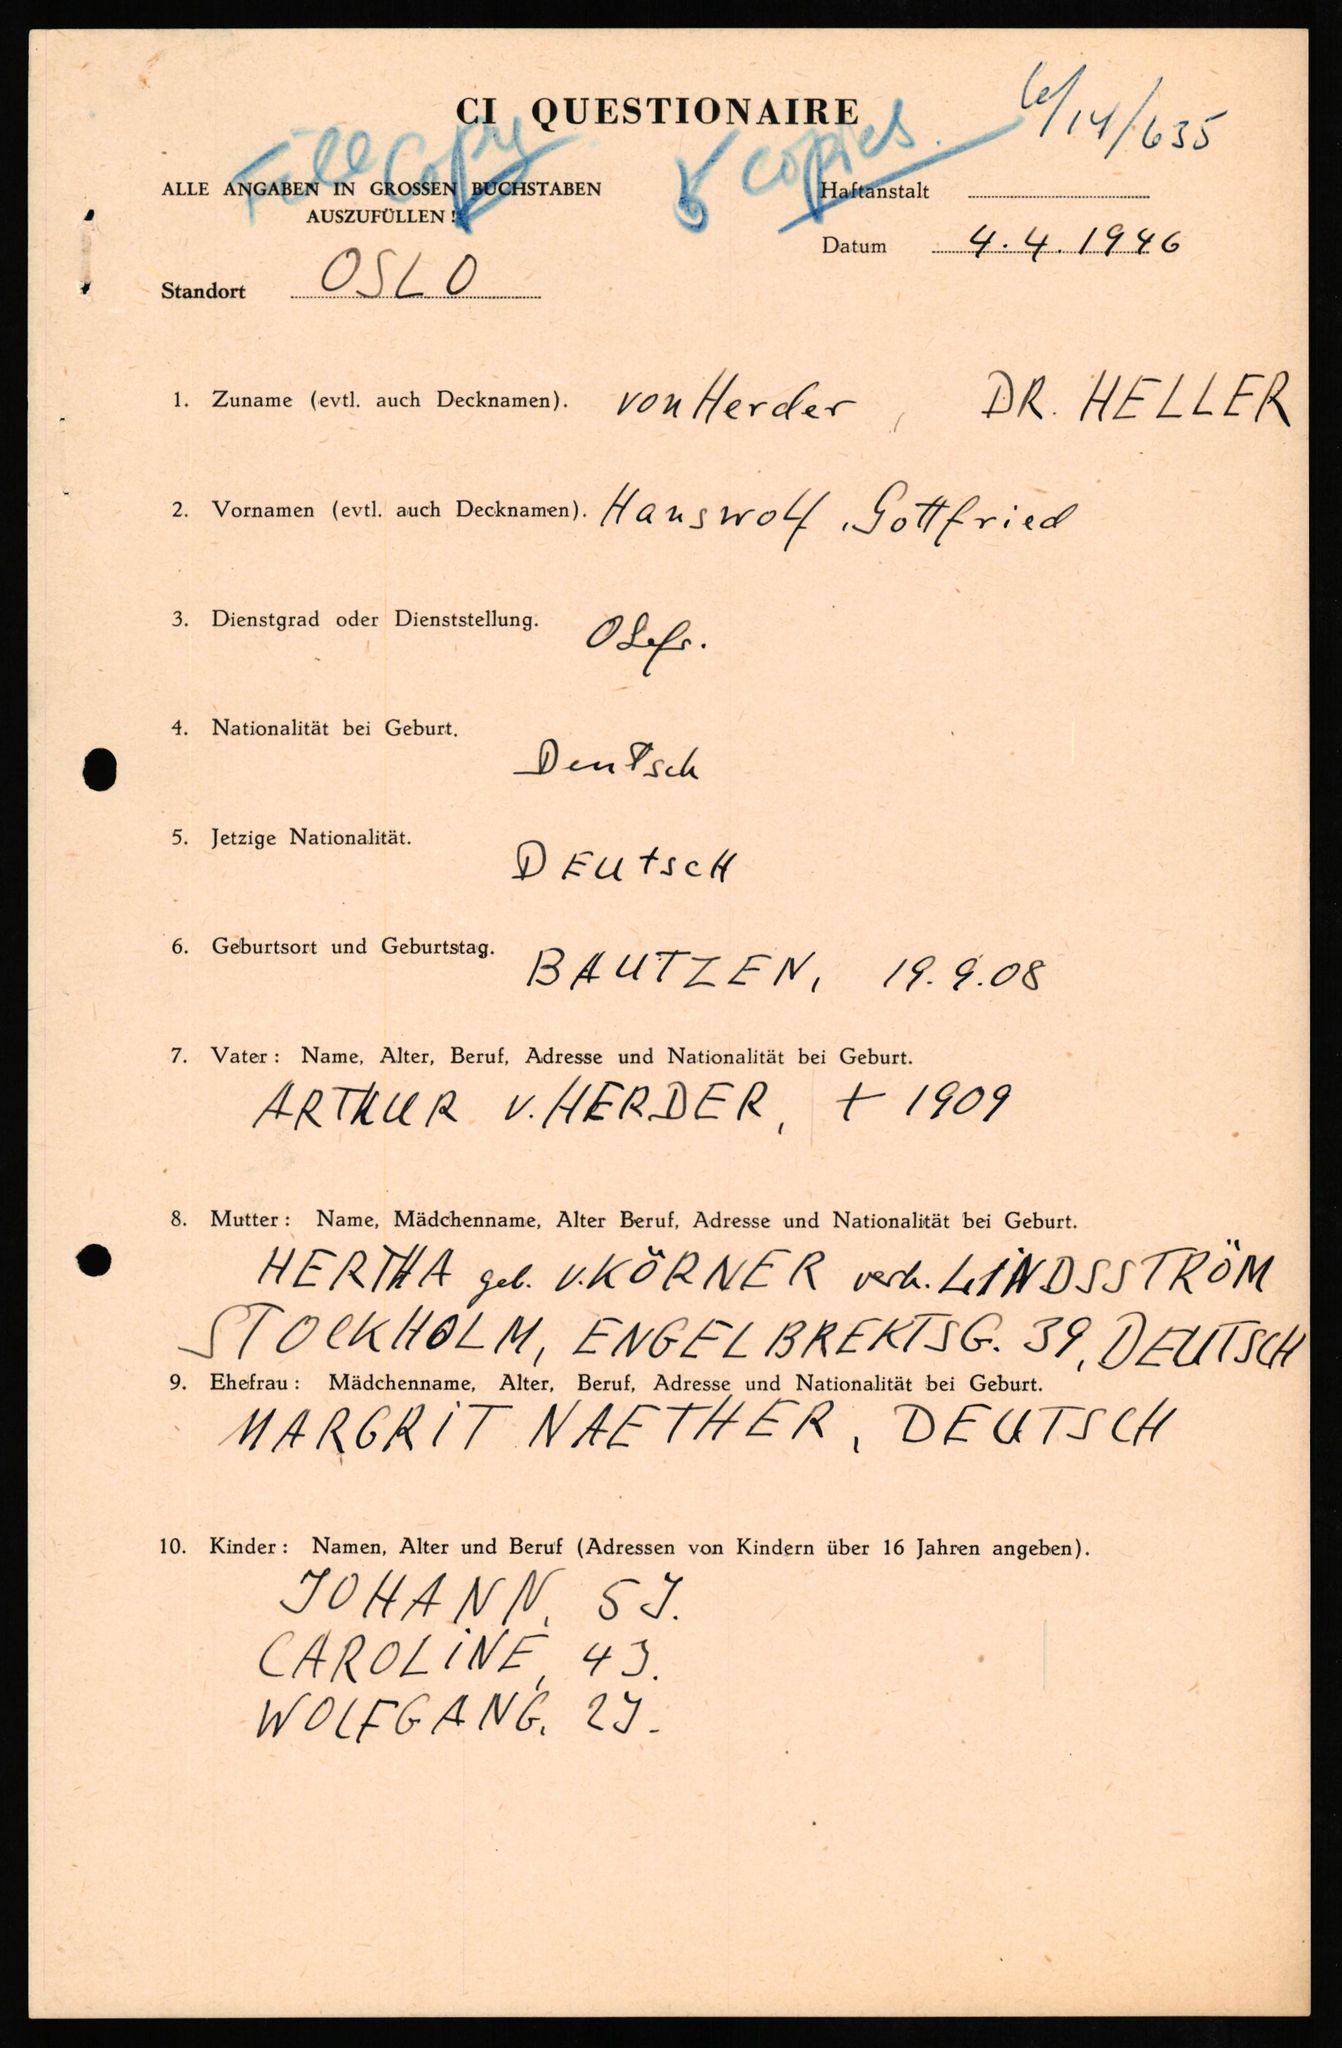 CI QUESTIONAIRE
Full Copy 5 copies. /14/635
ALLE ANGABEN IN GROSSEN BUCHSTABEN
AUSZUFÜLLEN!
Haftanstalt
Datum 4.4.1946
Standort OSLO
1. Zuname (evtl. auch Decknamen). von Herder, DR. HELLER
2. Vornamen (evtl. auch Decknamen). Hanswolf, Gottfried
3. Dienstgrad oder Dienststellung.
4. Nationalität bei Geburt.
Deutsch
5. Jetzige Nationalität.
DEUtscH
6. Geburtsort und Geburtstag.
BAUTZEN, 19.9.08
7. Vater: Name, Alter, Beruf, Adresse und Nationalität bei Geburt.
ARTHUR v. HERDER, + 1909
8. Mutter: Name, Mädchenname, Alter Beruf, Adresse und Nationalität bei Geburt.
HERTHA geb. v. KÖRNER verh. LINDSSTRÖM
STOCKHOLM, ENGELBREKTSG. 39, DEUTSCH
9. Ehefrau: Mädchenname, Alter, Beruf, Adresse und Nationalität bei Geburt.
MARGRIT NAETHER, DEUTSCH
10. Kinder: Namen, Alter und Beruf (Adressen von Kindern über 16 Jahren angeben).
JOHANN, 5J.
CAROLINE, 4J.
WOLFGANG, 2J.